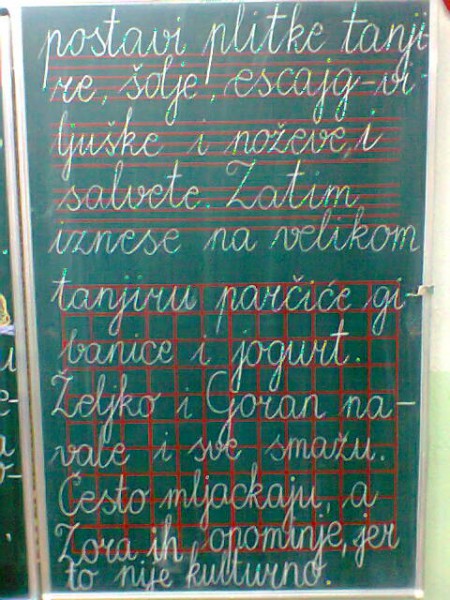 postavi plitke tanji-
re, šolje, escajg-vi
ljuške i noževe, i
salvete. Zatim,
iznese na velikom
tanjiru parčiće gi-
banice i jogurt.
Željko i Goran na-
vale i sve smažu.
Često mljackaju, a
Zora ih opominje, jer
to nije kulturno.